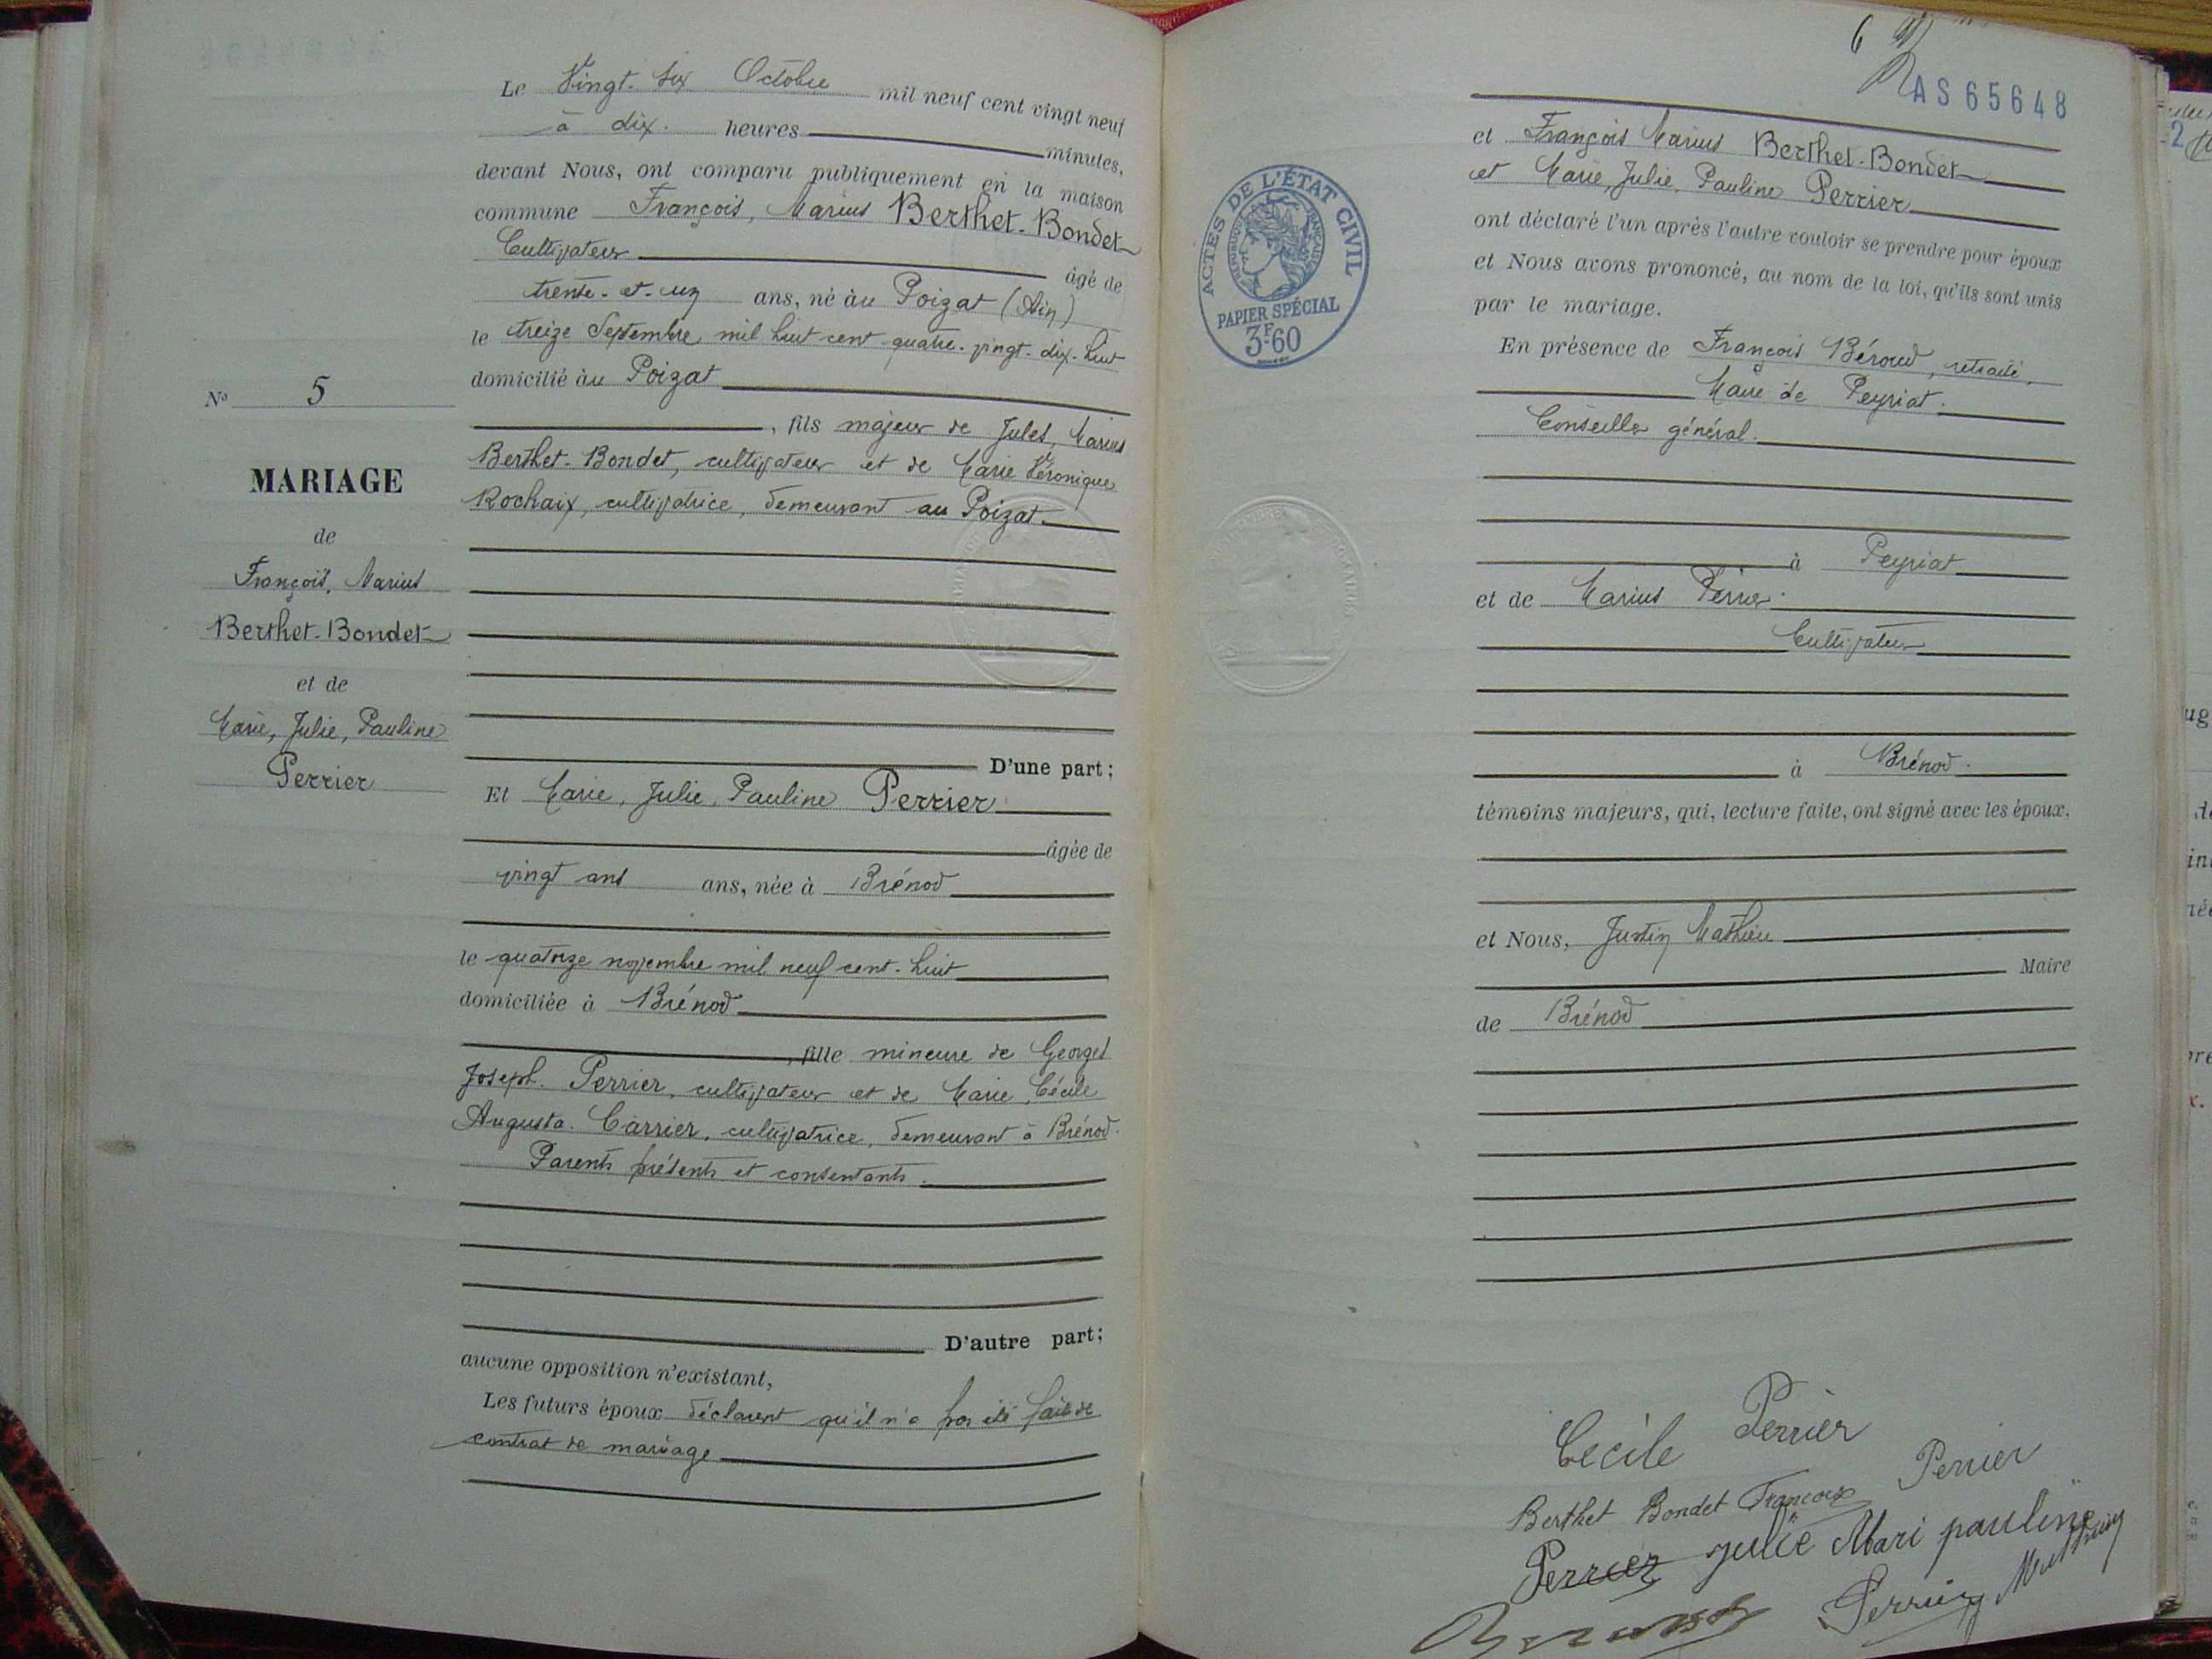 Le Vingt-six Octobre mil neuf cent vingt neuf
à dix heures minutes,
devant Nous, ont comparu publiquement en la maison
commune François, Marius Berthet-Bondet
Cultivateur âgé de
trente-et-un ans, né àu Poizat (Ain)
le treize Septembre mil huit cent quatre-vingt-dix-huit
domicilié àu Poizat
, fils majeur de Jules, Marius
Berthet-Bondet, cultivateur et de Marie Véronique
Rochaix, cultivatrice, demeurant au Poizat.
No 5
MARIAGE
de
François, Marius
Berthet-Bondet
et de
Marie, Julie, Pauline
Perrier
D'une part;
Et Marie, Julie, Pauline Perrier
âgée de
vingt ans ans, née à Brénod
le quatorze novembre mil neuf cent-huit
domiciliée à Brénod
, fille mineure de Georges
Joseph. Perrier, cultivateur et de Marie, Cécile
Augusta. Carrier, cultivatrice, demeurant à Brénod.
Parents présents et consentants.
D'autre part;
aucune opposition n'existant,
Les futurs époux déclarent qu'il n'a pas été fait de
contrat de mariage
6
AS65648
et François Marius Berthet-Bondet
et Marie, Julie, Pauline Perrier
ont déclaré l'un après l'autre vouloir se prendre pour époux
et Nous avons prononcé, au nom de la loi, qu'ils sont unis
par le mariage.
ACTES DE L'ÉTAT CIVIL
RÉPUBLIQUE FRANÇAISE
PAPIER SPÉCIAL
3F60
En présence de François Béroud, retraité,
Maire de Peyriat.
Conseiller général.
à Peyriat
et de Marius Perrier.
Cultivateur
à Brénod.
témoins majeurs, qui, lecture faite, ont signé avec les époux.
et Nous, Justin Mathieu
Maire
de Brénod
Cécile Perrier
Perrier
Berthet Bondet François
Perrier julie Mari pauline
Perrier